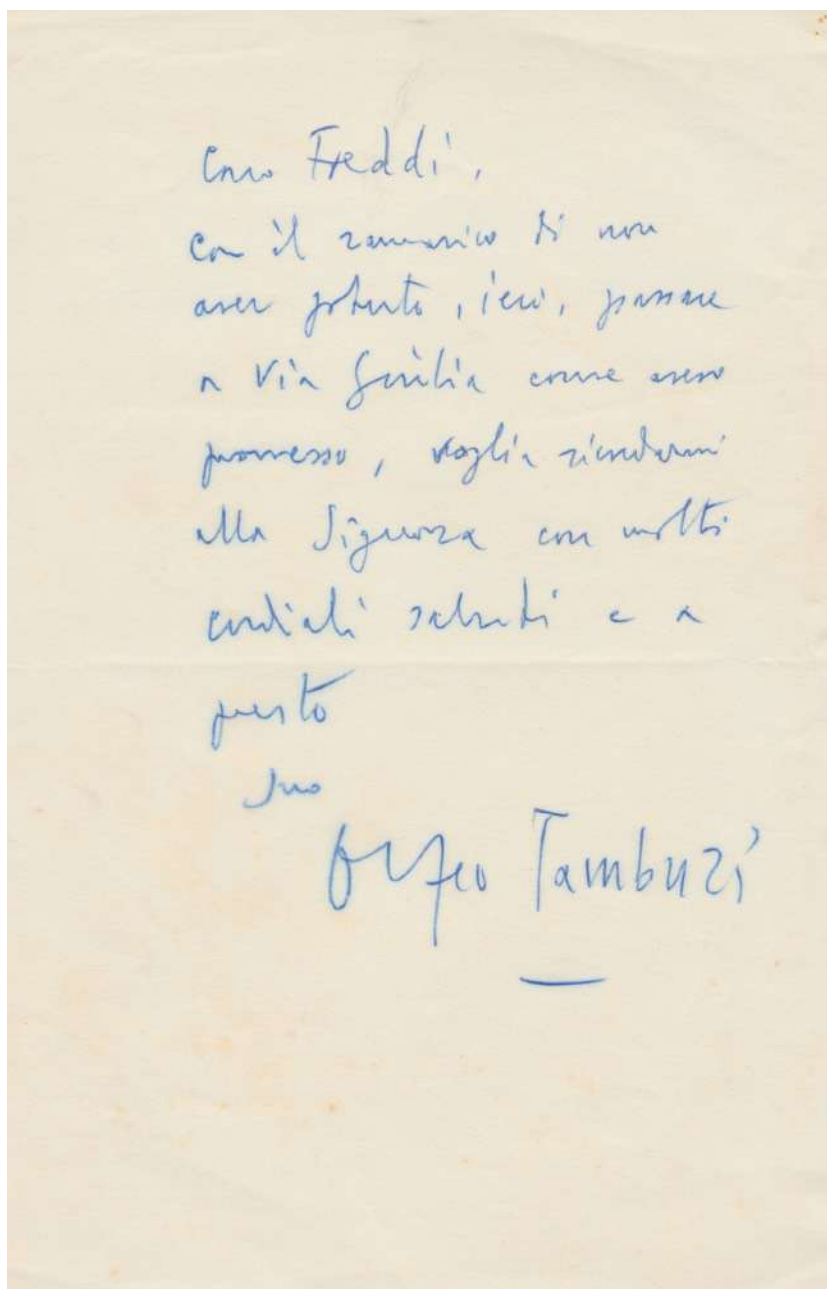 Caro Freddi,
con il rammarico di non
aver potuto, ieri, passare
a Via Giulia come avevo
promesso, voglia ricordarmi
alla Signora con molti
cordiali saluti e a
presto
suo
Orfeo Tamburi